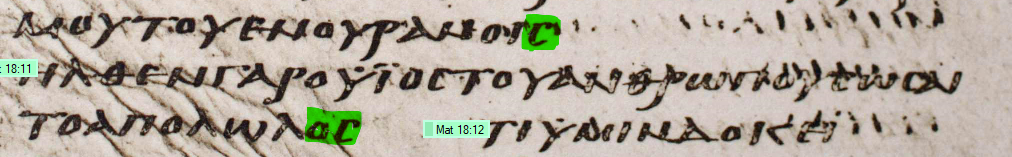 ΜΟΥΤΟΥΕΝΟΥΡΑΝΟΙϹ
18:11 ΗΛΘΕΝΓΑΡΟΫΙΟϹΤΟΥΑΝΘΡΩΠΟΥϹΩϹΑΙ
ΤΟΑΠΟΛΩΛΟϹ Mat 18:12 ΤΙΫΜΙΝΔΟΚΕΙ